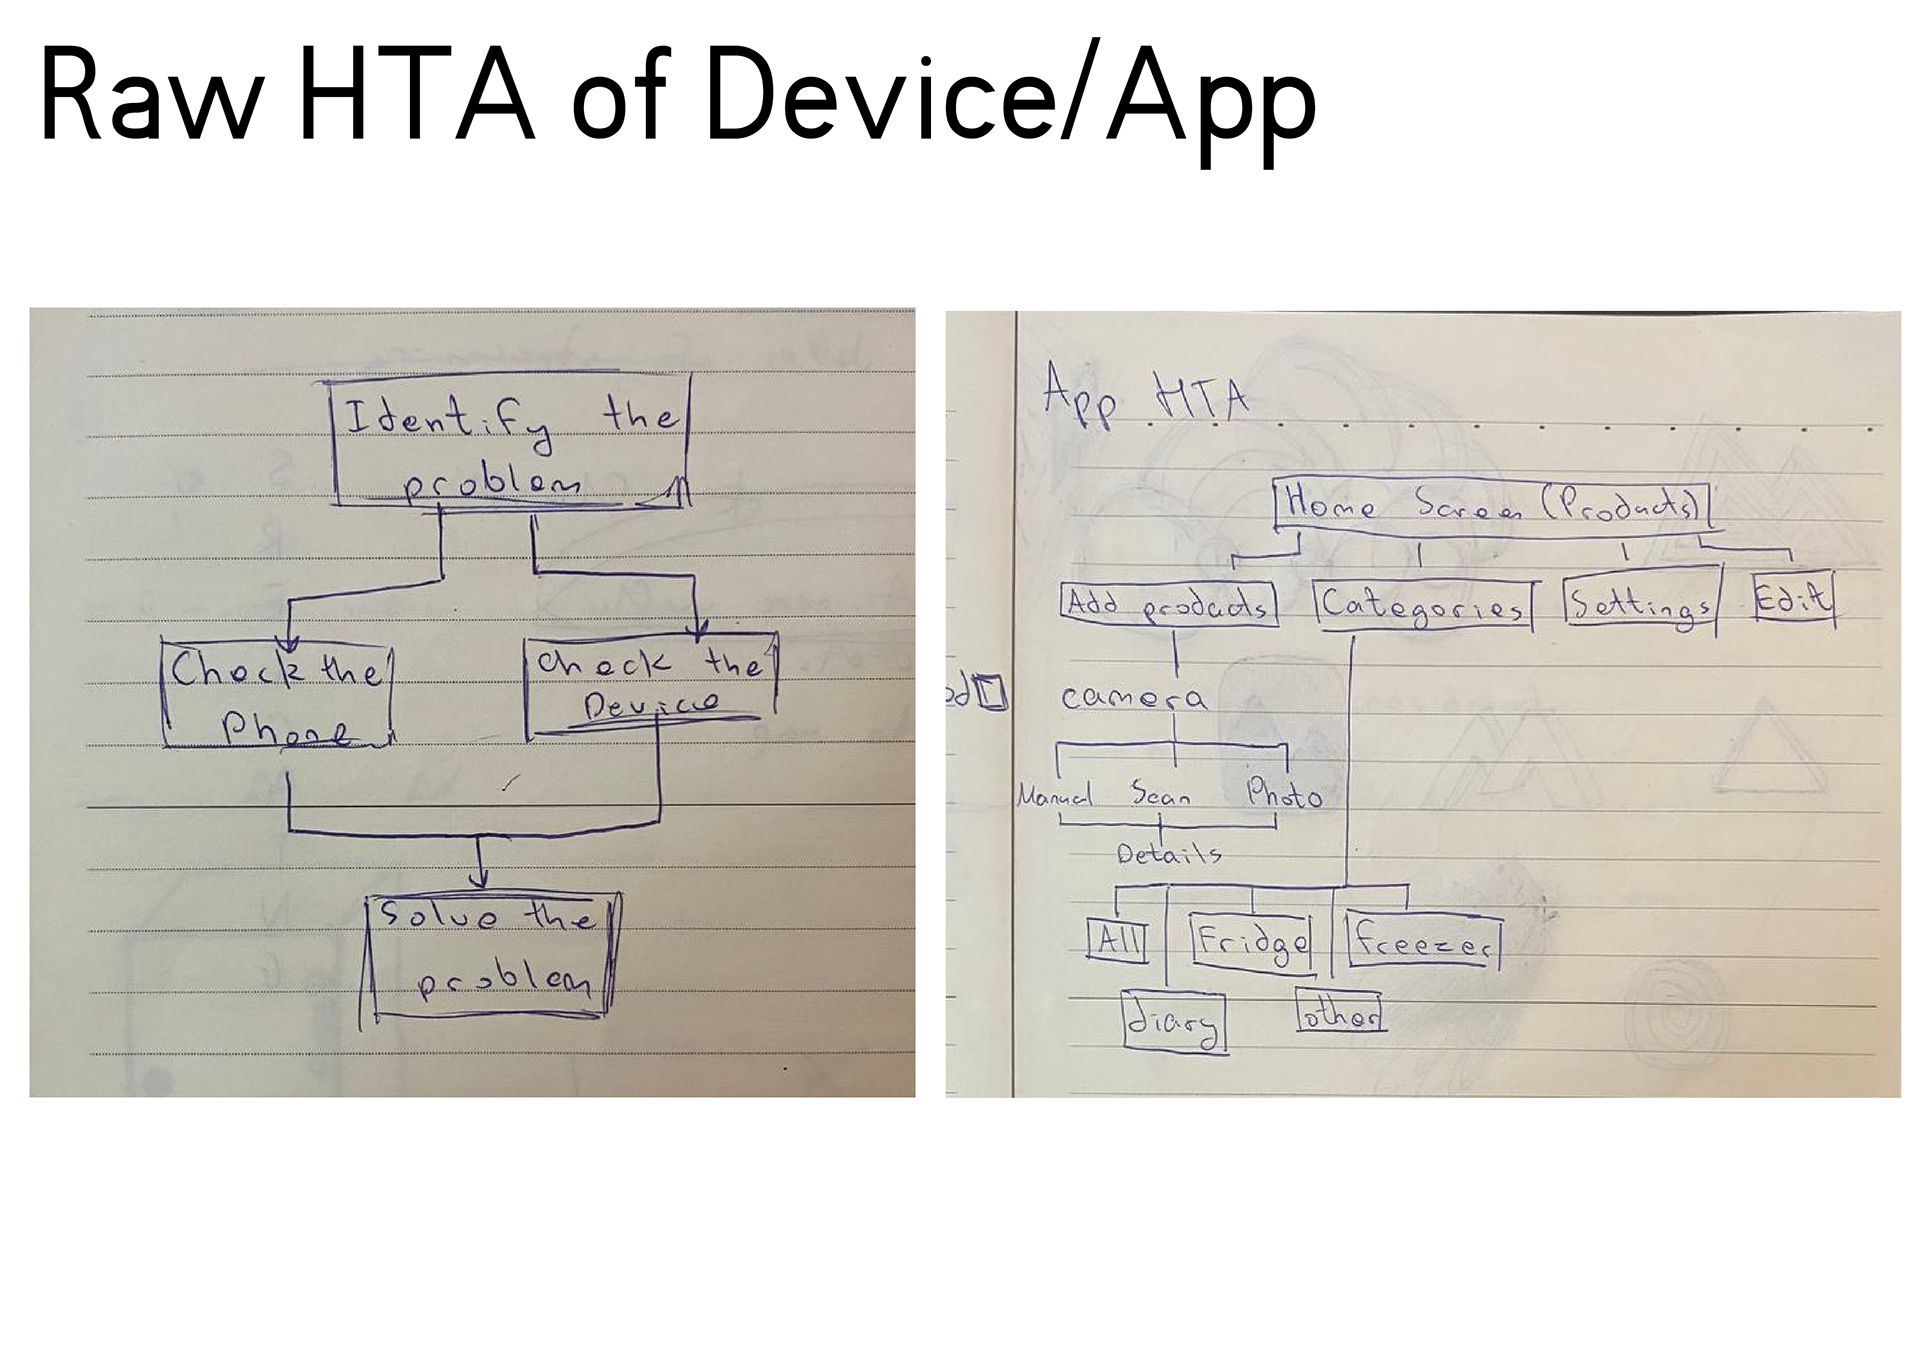 Raw HTA of Device/App
Identify the
problem
Check the
Phone
check the
Device
Solve the
problem
App HTA
Home Screen (Products)
Add products Categories Settings Edit
camera
Manual Scan Photo
Details
All Fridge freezer
diary other